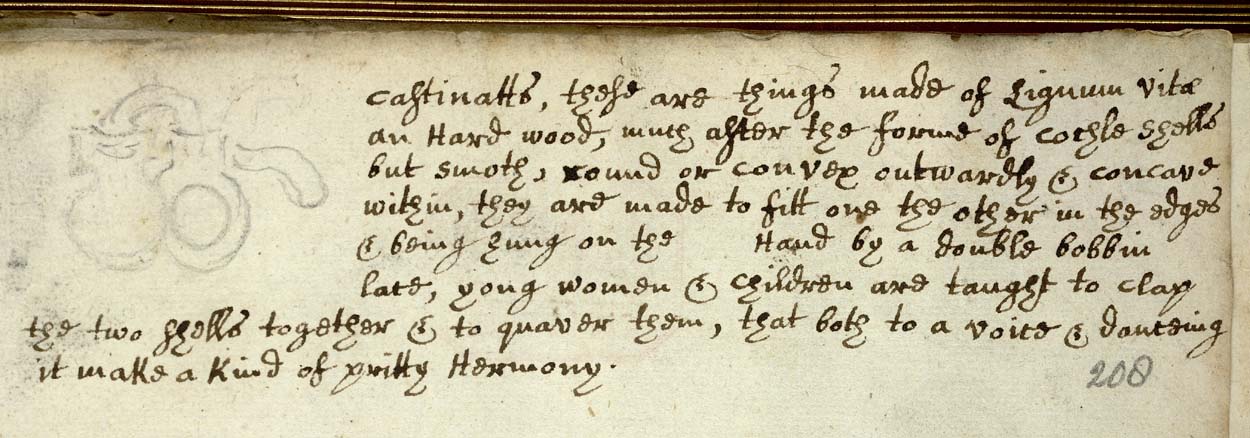 Castinatts, these are things made of Lignum vitæ
an Hard wood, much after the forme of cochle shells
but smoth, round or convex outwardly & concave
within, they are made to fitt one the other in the edges
& being hung on the Hand by a double bobbin
lace, yong women & children are taught to clap
the two shells together & to quaver them, that both to a voice & danceing
it make a kind of pritty Hermony.
208